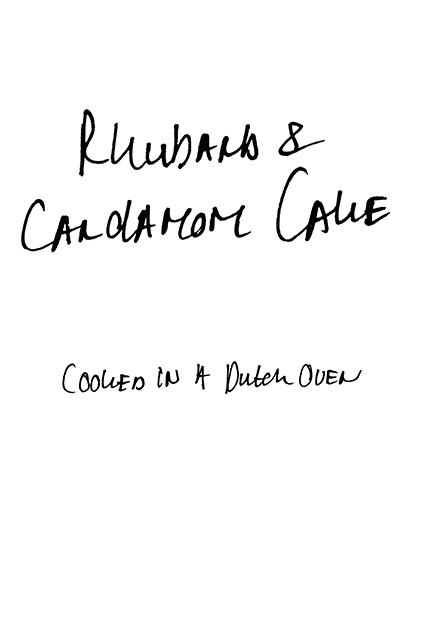 Rhubarb &
Cardamom Cake
Cooked in a Dutch Oven